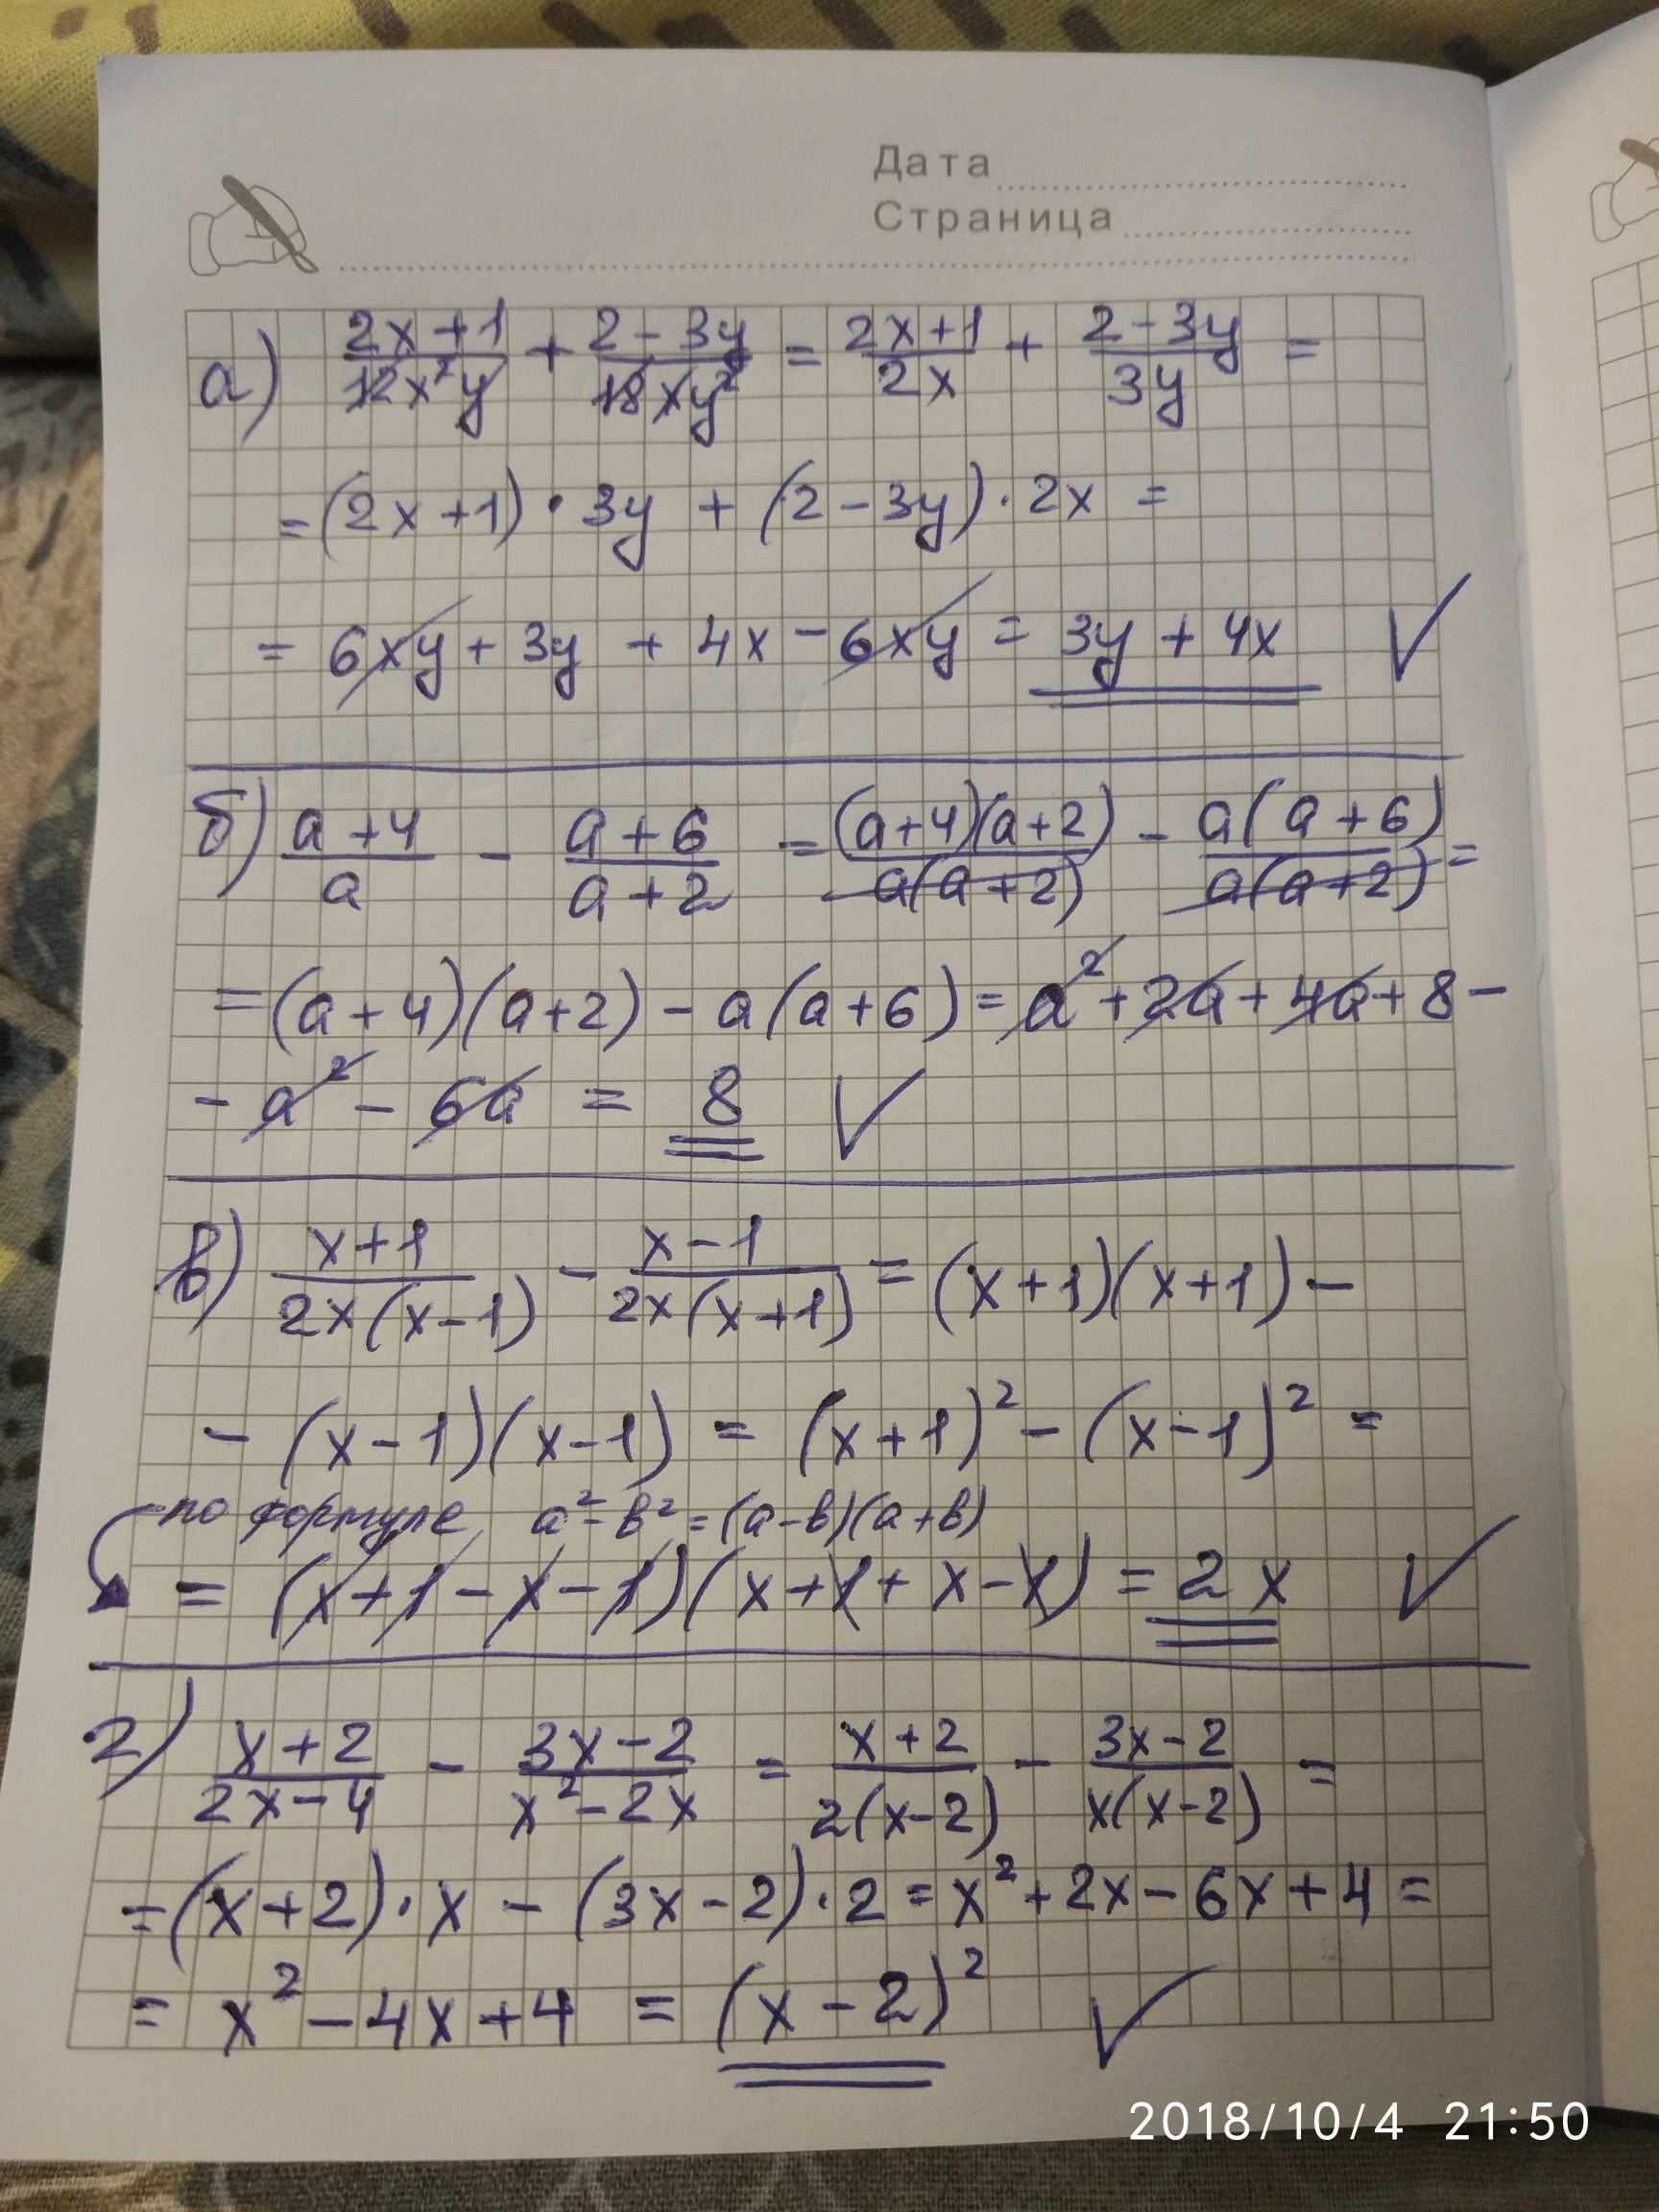 Дата
Страница
а) (2x+1)/(12x²y) + (2-3y)/(18xy²) = (2x+1)/(2x) + (2-3y)/(3y) =
= (2x+1)·3y + (2-3y)·2x =
= 6xy + 3y + 4x - 6xy = 3y + 4x ✓
б) (a+4)/a - (a+6)/(a+2) = (a+4)(a+2)/(a(a+2)) - a(a+6)/(a(a+2)) =
= (a+4)(a+2) - a(a+6) = a² + 2a + 4a + 8 -
- a² - 6a = 8 ✓
в) (x+1)/(2x(x-1)) - (x-1)/(2x(x+1)) = (x+1)(x+1) -
- (x-1)(x-1) = (x+1)² - (x-1)² =
по формуле a²-в²=(a-в)(a+в)
= (x+1-x-1)(x+1+x-1) = 2x ✓
г) (x+2)/(2x-4) - (3x-2)/(x²-2x) = (x+2)/(2(x-2)) - (3x-2)/(x(x-2)) =
= (x+2)·x - (3x-2)·2 = x²+2x-6x+4 =
= x²-4x+4 = (x-2)² ✓
2018/10/4 21:50